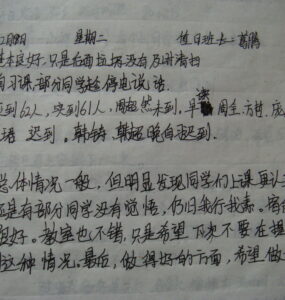 2月8日 星期二 值日班长:葛鹏
基本良好,只是后面垃圾没有及时清扫
自习课,部分同学趁停电说话
到62人,实到61人,周超然未到,早读 周全、方
迟到。韩铸、韩超晚自迟到。
总体情况一般,但明显发现同学们上课更认
还是有部分同学没有觉悟,仍旧我行我素。
很好。教室也不错,只是希望下次不要在
这种情况。最后,做得好的方面,希望做